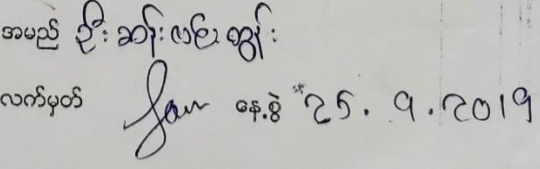 အမည် ဦးဆန်းလင်းထွန်း
လက်မှတ် နေ့စွဲ 25.9.2019